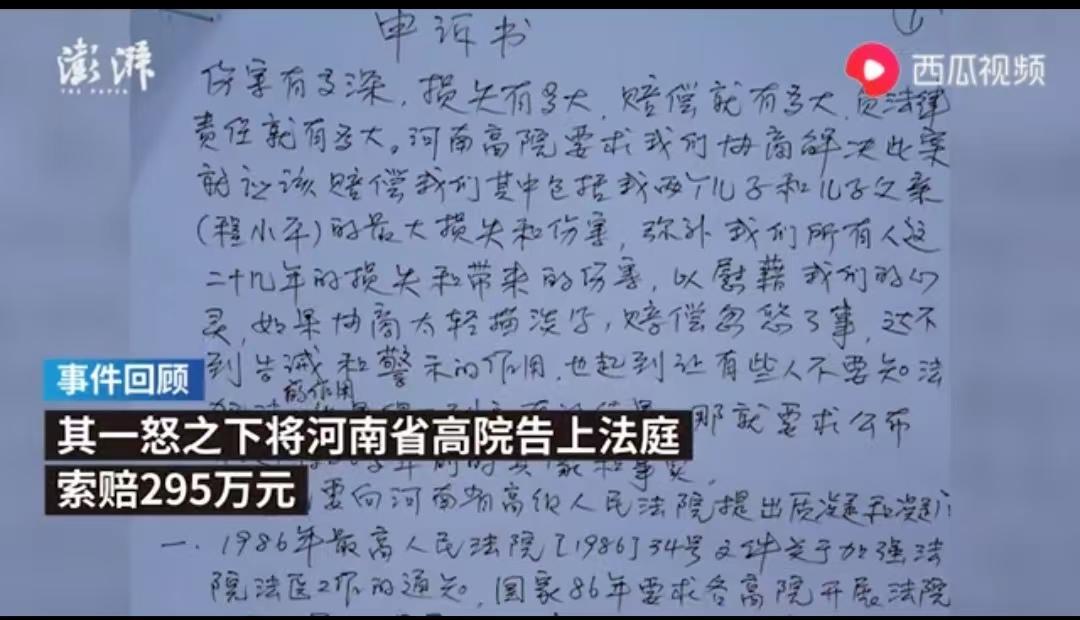 申诉书
①
澎湃
THE PAPER
西瓜视频
伤害有多深，损失有多大，赔偿就有多大，负法律
责任就有多大。河南高院要求我们协商解决此案
就应该赔偿我们其中包括我两个儿子和儿子父亲
(程小平)的最大损失和伤害，弥补我们所有人这
二十几年的损失和带来的伤害，以慰藉我们的心
灵，如果协商太轻描淡写，赔偿忽悠了事，达不
到告诫和警示的作用，也起到让有些人不要知法
的作用
那就要求公布
年前的真象和事实，
要向河南省高级人民法院提出质凝和凝
一．1986年最高人民法院［1986］34号文件关于加强法
院法医工作的通知。国家86年要求各高院开展法院
事件回顾
其一怒之下将河南省高院告上法庭
索赔295万元